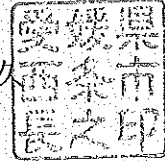 愛媛県
西条市
長之印